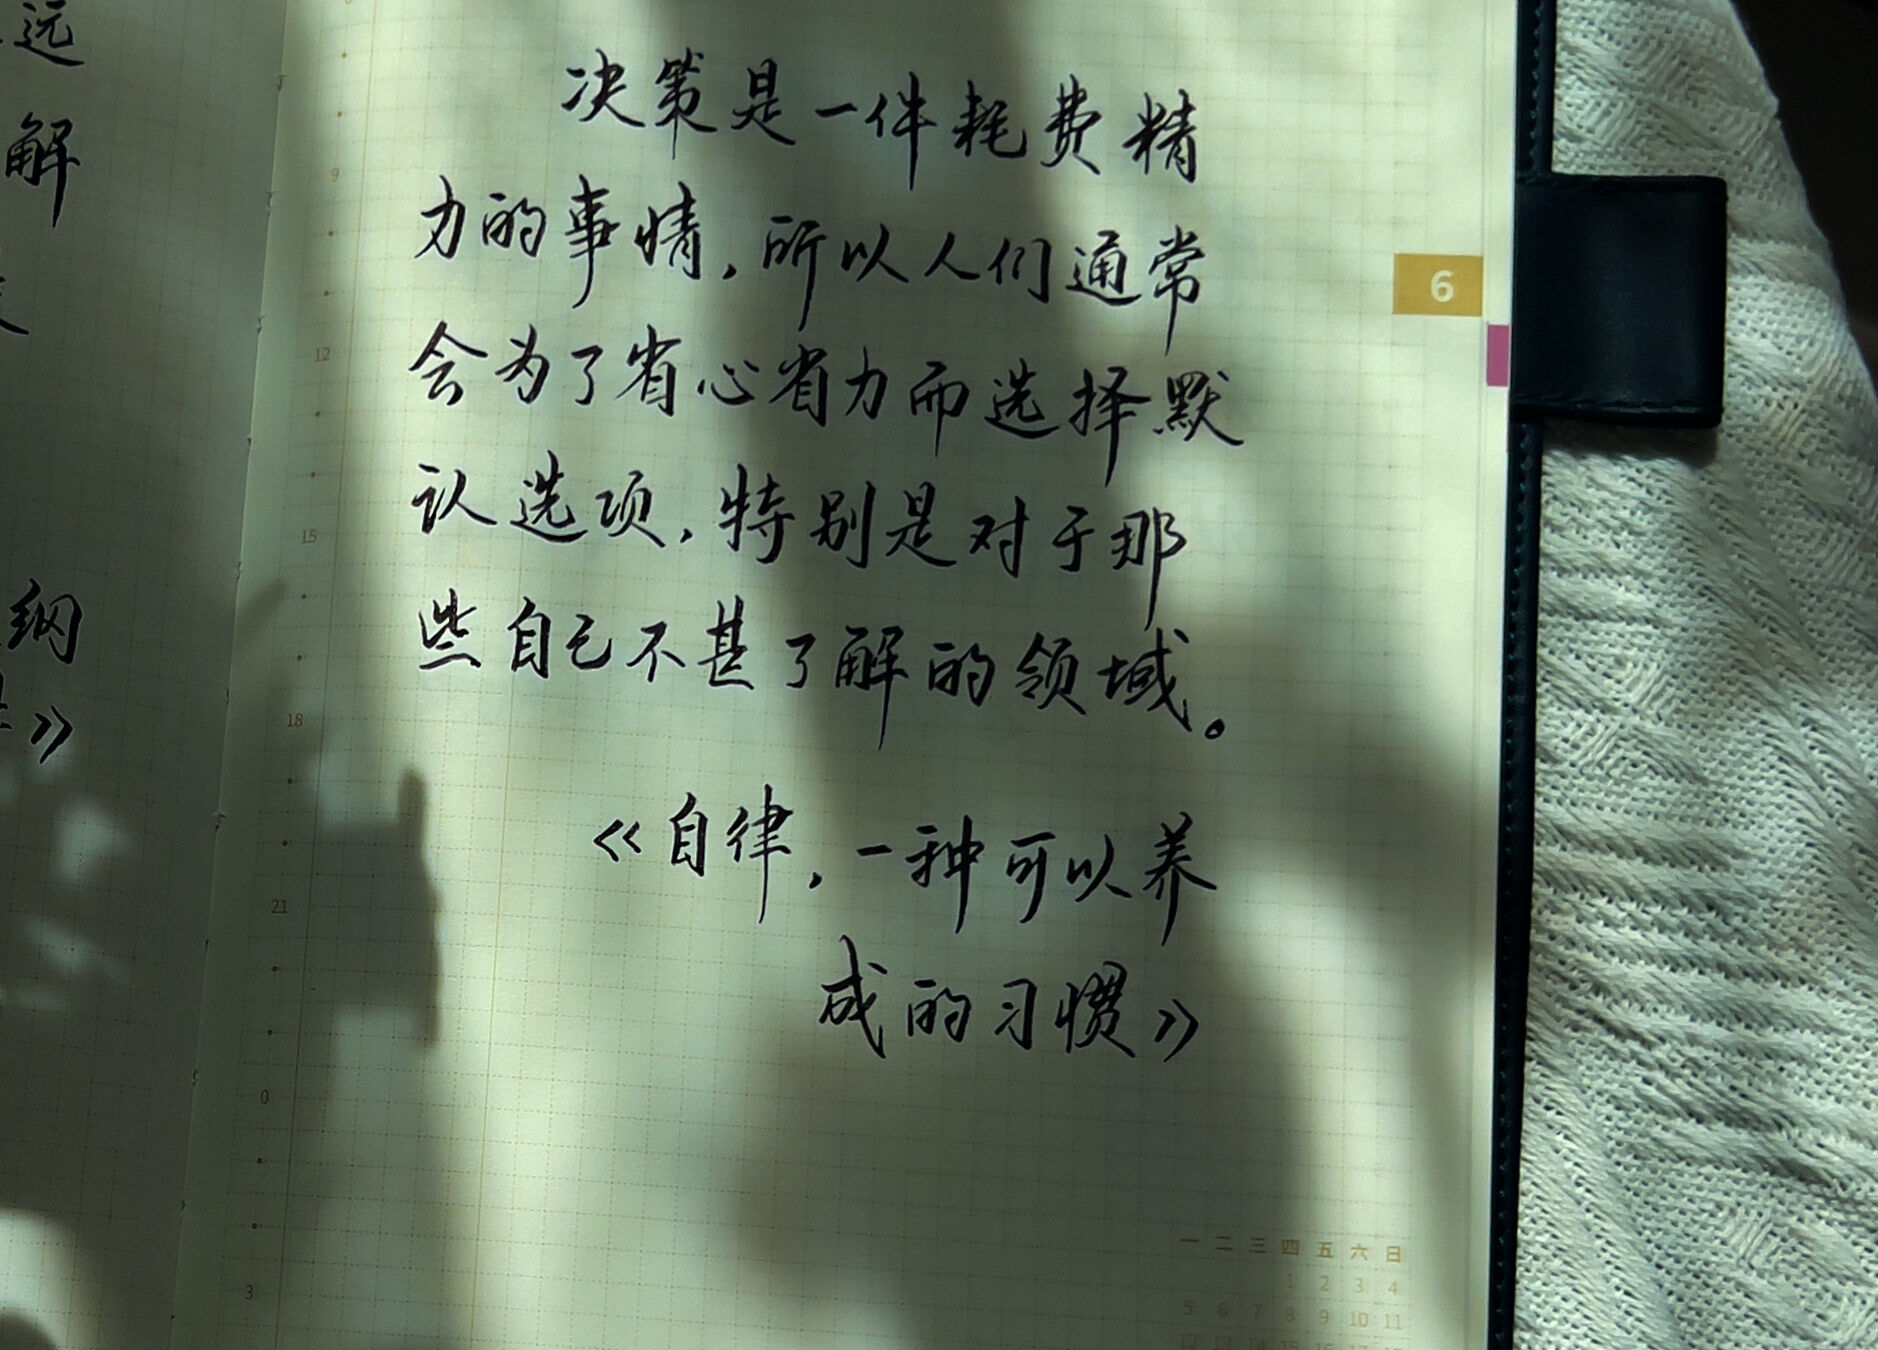 远
解
纲
》
决策是一件耗费精
力的事情,所以人们通常
会为了省心省力而选择默
认选项,特别是对于那
些自己不甚了解的领域。
《自律,一种可以养
成的习惯》
6
9
12
15
18
21
0
3
一 二 三 四 五 六 日
1 2 3 4
5 6 7 8 9 10 11